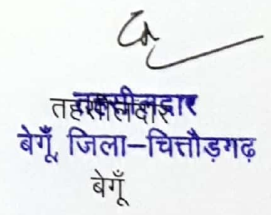 तहसीलदार
तहसीलदार
बेगूँ, जिला–चित्तौड़गढ़
बेगूँ